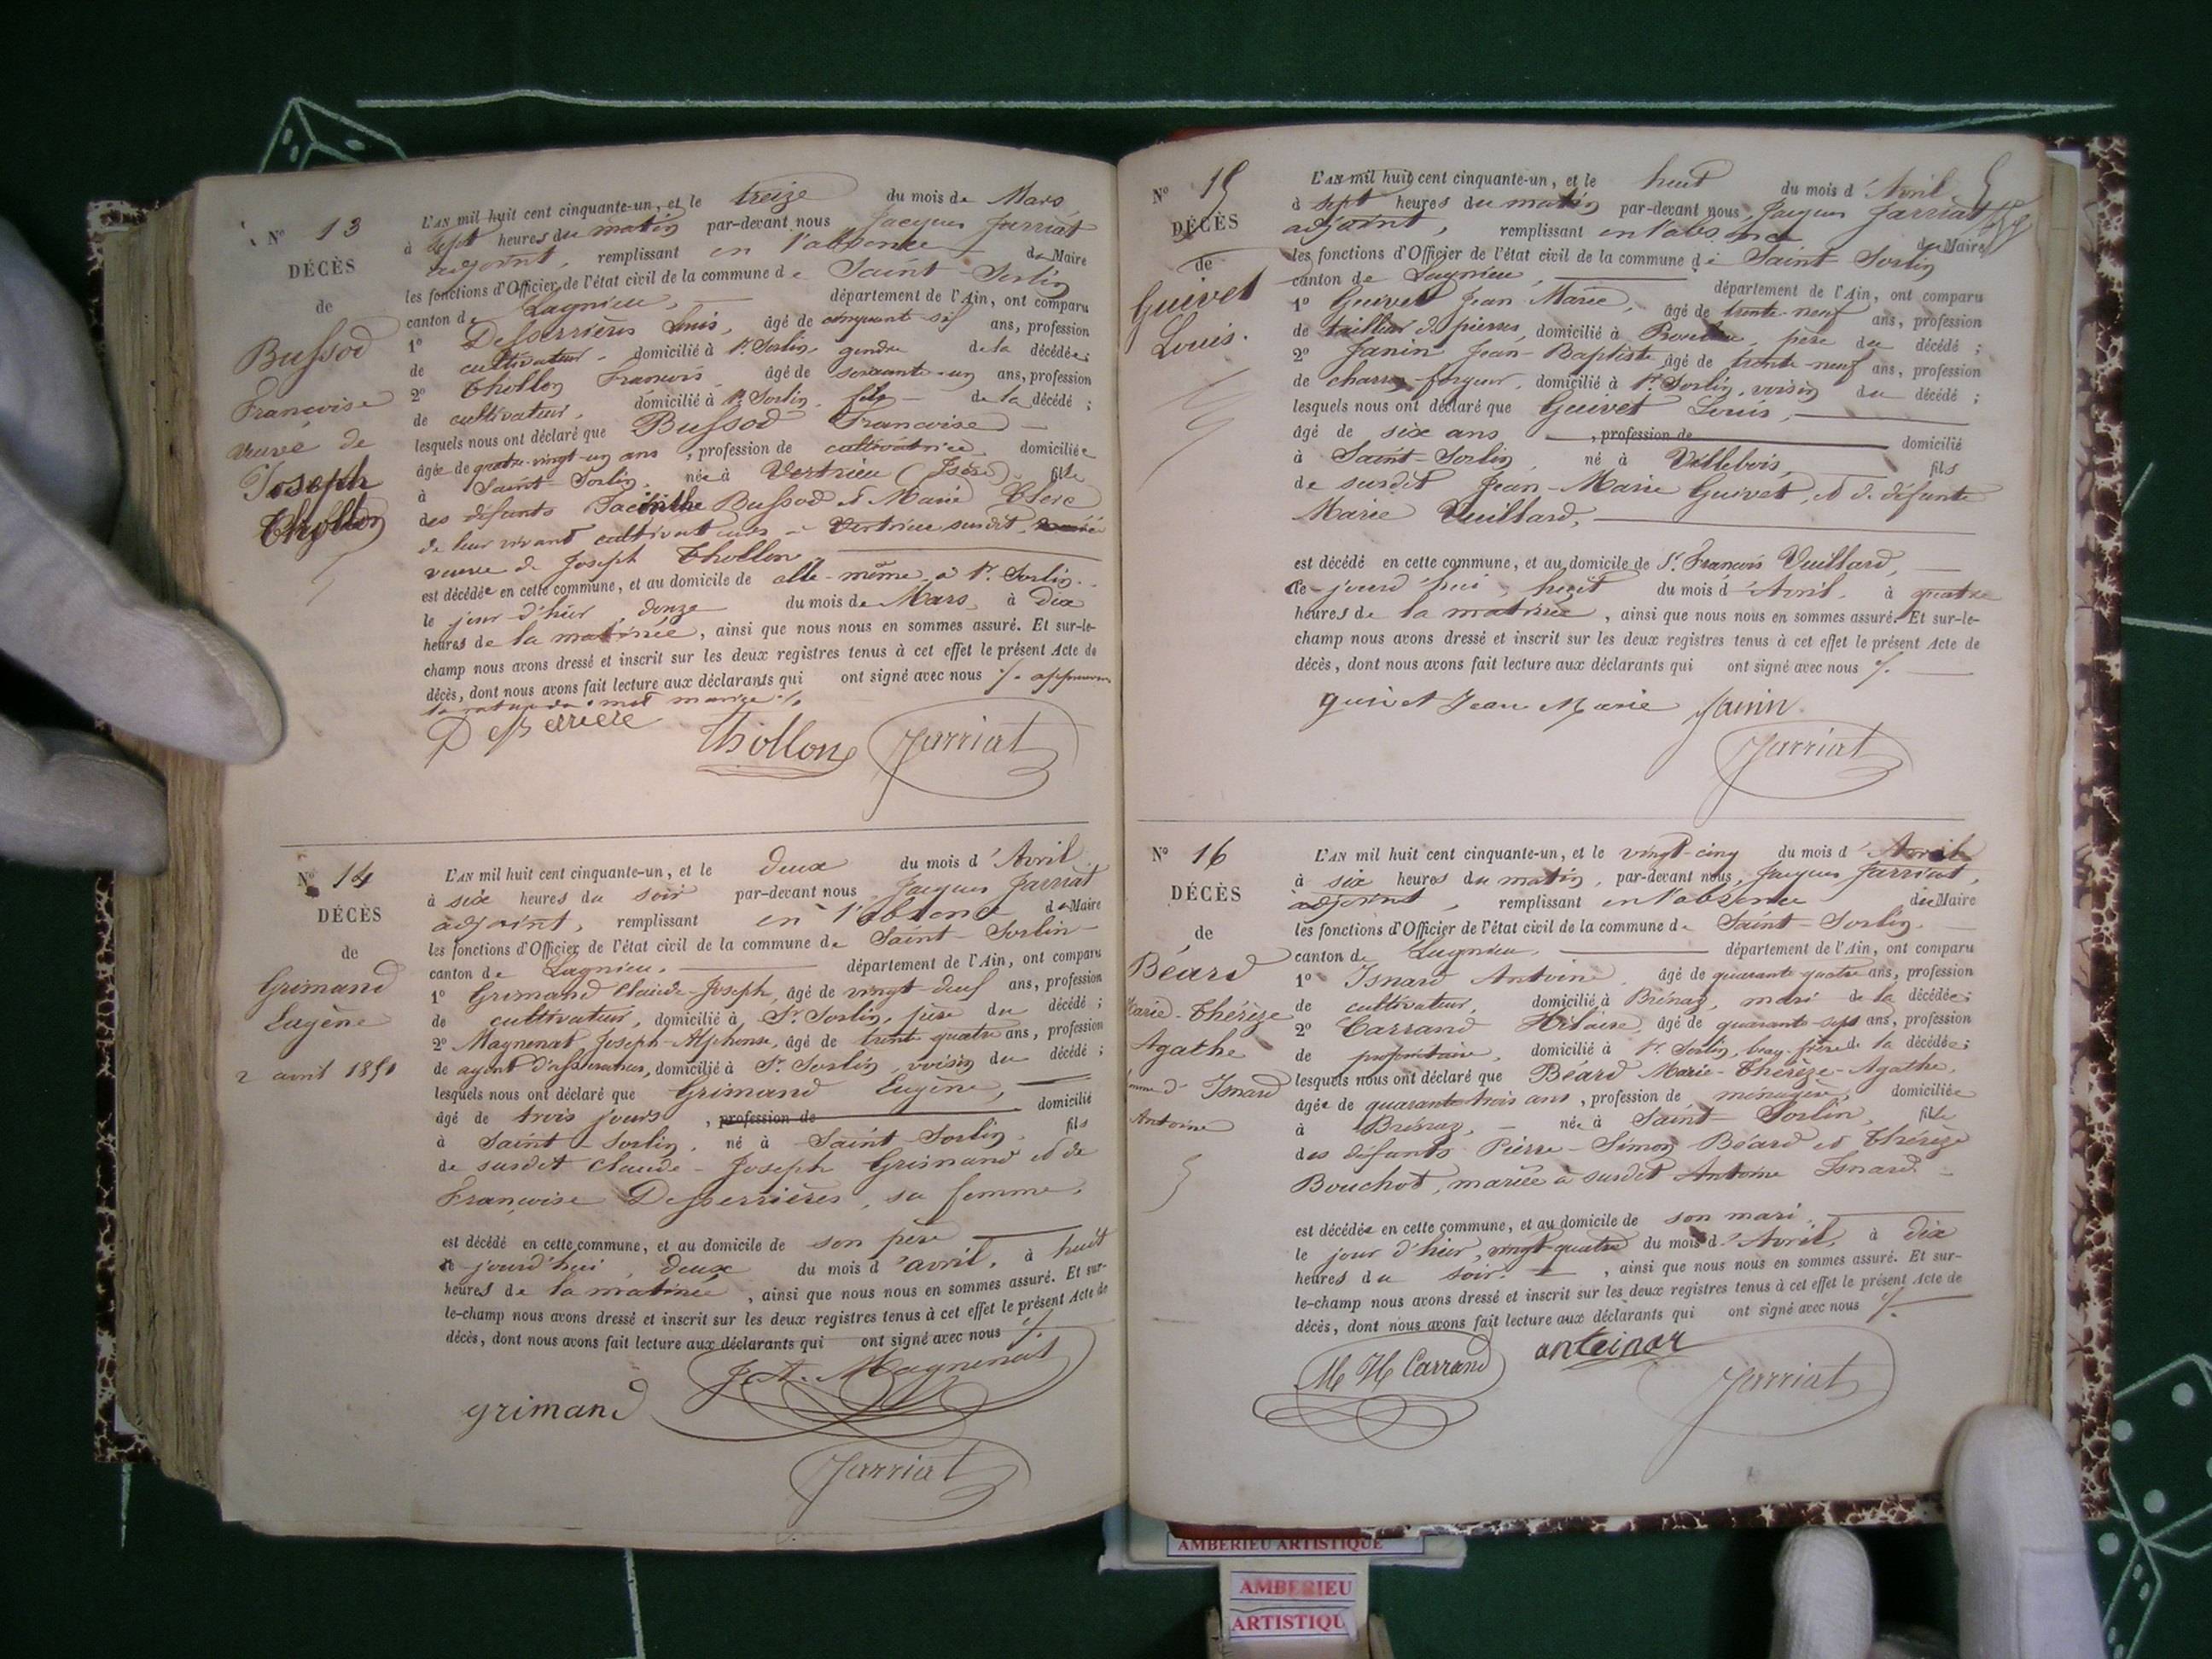 N° 13
DÉCÈS
de
Bussod
Françoise
veuve de
Joseph
Thollon
L'AN mil huit cent cinquante-un, et le treize du mois de Mars
à sept heures du matin par-devant nous Jacques Jarriat
adjoint, remplissant en l'absence du Maire
les fonctions d'Officier de l'état civil de la commune de Saint-Sorlin
canton de Lagnieu, département de l'Ain, ont comparu
1° Desserrières Louis, âgé de cinquante-six ans, profession
de cultivateur, domicilié à St. Sorlin, gendre de la décédée;
2° Thollon François, âgé de soixante-un ans, profession
de cultivateur, domicilié à St. Sorlin, fils de la décédé;
lesquels nous ont déclaré que Bussod Françoise
âgée de quatre-vingt-un ans, profession de cultivatrice domiciliée
à Saint-Sorlin, née à Vertrieu (Isère), fille
des défunts Jacinthe Bussod et Marie Clerc
de leur vivant cultivateurs à Vertrieu susdit, mariée
veuve de Joseph Thollon
est décédée en cette commune, et au domicile de elle-même à St. Sorlin.
le jour d'hier, douze du mois de Mars, à dix
heures de la matinée, ainsi que nous nous en sommes assuré. Et sur-le-
champ nous avons dressé et inscrit sur les deux registres tenus à cet effet le présent Acte de
décès, dont nous avons fait lecture aux déclarants qui ont signé avec nous ./. approuvons
la rature du mot mariée ./.
Desserriere Thollon Jarriat
N° 14
DÉCÈS
de
Grimand
Eugène
2 avril 1851
L'AN mil huit cent cinquante-un, et le deux du mois d'Avril
à six heures du soir par-devant nous Jacques Jarriat
adjoint, remplissant en l'absence du Maire
les fonctions d'Officier de l'état civil de la commune de Saint-Sorlin
canton de Lagnieu, département de l'Ain, ont comparu
1° Grimand Claude-Joseph, âgé de vingt-deuf ans, profession
de cultivateur, domicilié à St. Sorlin, père du décédé;
2° Magnenat Joseph-Alphonse, âgé de trente quatre ans, profession
de agent d'assurances, domicilié à St. Sorlin, voisin du décédé;
lesquels nous ont déclaré que Grimand Eugène,
âgé de trois jours, profession de domicilié
à Saint-Sorlin, né à Saint-Sorlin, fils
de susdit Claude-Joseph Grimand et de
Françoise Desserrières, sa femme,
est décédé en cette commune, et au domicile de son père
ce jourd'hui, deux du mois d'avril, à huit
heures de la matinée, ainsi que nous nous en sommes assuré. Et sur-
le-champ nous avons dressé et inscrit sur les deux registres tenus à cet effet le présent Acte de
décès, dont nous avons fait lecture aux déclarants qui ont signé avec nous ./.
J. A. Magnenat
grimand
Jarriat
N° 15
DÉCÈS
de
Guivet
Louis.
L'AN mil huit cent cinquante-un, et le huit du mois d'Avril
à sept heures du matin par-devant nous Jacques Jarriat
adjoint, remplissant en l'absence du Maire
les fonctions d'Officier de l'état civil de la commune de Saint-Sorlin
canton de Lagnieu, département de l'Ain, ont comparu
1° Guivet Jean-Marie, âgé de trente-neuf ans, profession
de tailleur de pierres, domicilié à père du décédé;
2° Janin Jean-Baptiste âgé de trente-neuf ans, profession
de charron-forgeur, domicilié à St. Sorlin, voisin du décédé;
lesquels nous ont déclaré que Guivet Louis,
âgé de six ans, profession de domicilié
à Saint-Sorlin, né à Villebois, fils
de susdit Jean-Marie Guivet, et de défunte
Marie Vuillard,
est décédé en cette commune, et au domicile de Sr. François Vuillard,
ce jourd'hui, huit du mois d'Avril, à quatre
heures de la matinée, ainsi que nous nous en sommes assuré. Et sur-le-
champ nous avons dressé et inscrit sur les deux registres tenus à cet effet le présent Acte de
décès, dont nous avons fait lecture aux déclarants qui ont signé avec nous ./.
guivet Jean Marie Janin
Jarriat
N° 16
DÉCÈS
de
Béard
Marie-Thérèze
Agathe
femme d' Isnard
Antoine
L'AN mil huit cent cinquante-un, et le vingt-cinq du mois d'Avril
à six heures du matin, par-devant nous, Jacques Jarriat,
adjoint, remplissant en l'absence du Maire
les fonctions d'Officier de l'état civil de la commune de Saint-Sorlin
canton de Lagnieu, département de l'Ain, ont comparu
1° Isnard Antoine, âgé de quarante quatre ans, profession
de cultivateur, domicilié à Brénaz, mari de la décédée;
2° Carrand Hilaire, âgé de quarante-sept ans, profession
de propriétaire, domicilié à St. Sorlin, beau-frère de la décédée;
lesquels nous ont déclaré que Béard Marie-Thérèze-Agathe,
âgée de quarante trois ans, profession de ménagère, domiciliée
à Brénaz, née à Saint-Sorlin, fille
des défunts Pierre-Simon Béard et Thérèze
Bouchot, mariée à susdit Antoine Isnard
est décédée en cette commune, et au domicile de son mari
le jour d'hier, vingt-quatre du mois d'Avril, à dix
heures du soir, ainsi que nous nous en sommes assuré. Et sur-
le-champ nous avons dressé et inscrit sur les deux registres tenus à cet effet le présent Acte de
décès, dont nous avons fait lecture aux déclarants qui ont signé avec nous ./.
M H Carrand
Jarriat
AMBERIEU ARTISTIQUE
AMBERIEU
ARTISTIQU